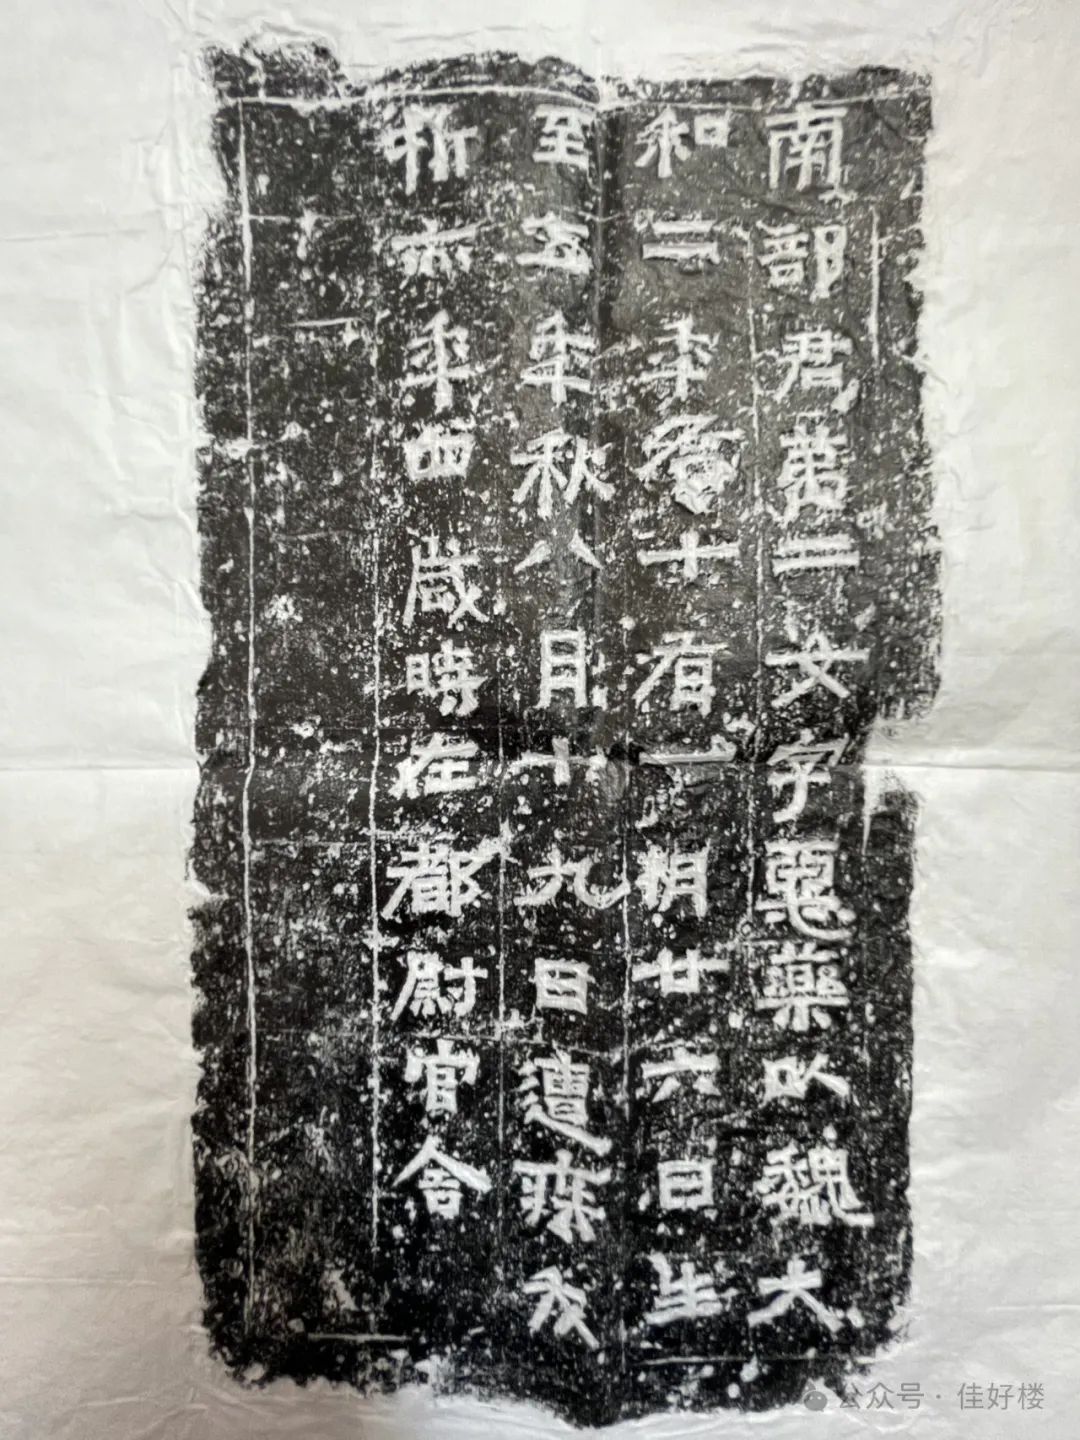 南部君苐二女字惡藥以魏大
和二年十有一朔廿六日生
至五年秋八月十九日遭疾夭
折亦年四歲時在都尉官舍
公众号·佳好楼